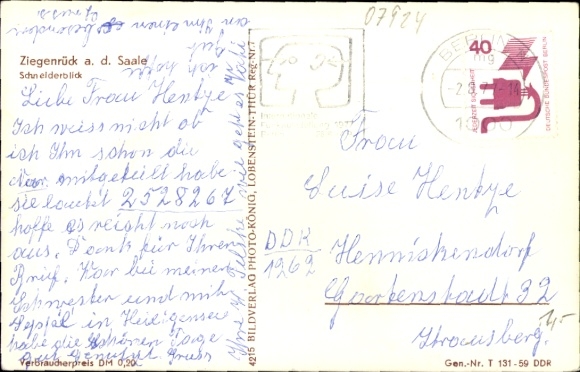 07924
Ziegenrück a. d. Saale
Schneiderblick
Liebe Frau Hentze
Ich weiss nicht ob
ich Ihn schon die
Nor. mitgeteilt habe
sie lautet 2528267
hoffe es reicht noch
aus, Dank für Ihren
Brif. War bei meiner
Schwester und mite
in Heidigensee
habe die schönen Tage
aus Genutzt Gruss
4215 BILDVERLAG PHOTO-KÖNIG, LOBENSTEIN-THÜR Reg.-Nr.
wie geht es
BERLIN
40
DEUTSCHE BUNDESPOST BERLIN
Frau
Luise Hentze
DDR
1262
Hennickendorf
Gartenstadt 32
Strausberg.
1,-
Verbraucherpreis DM 0,20
Gen.-Nr. T 131-59 DDR